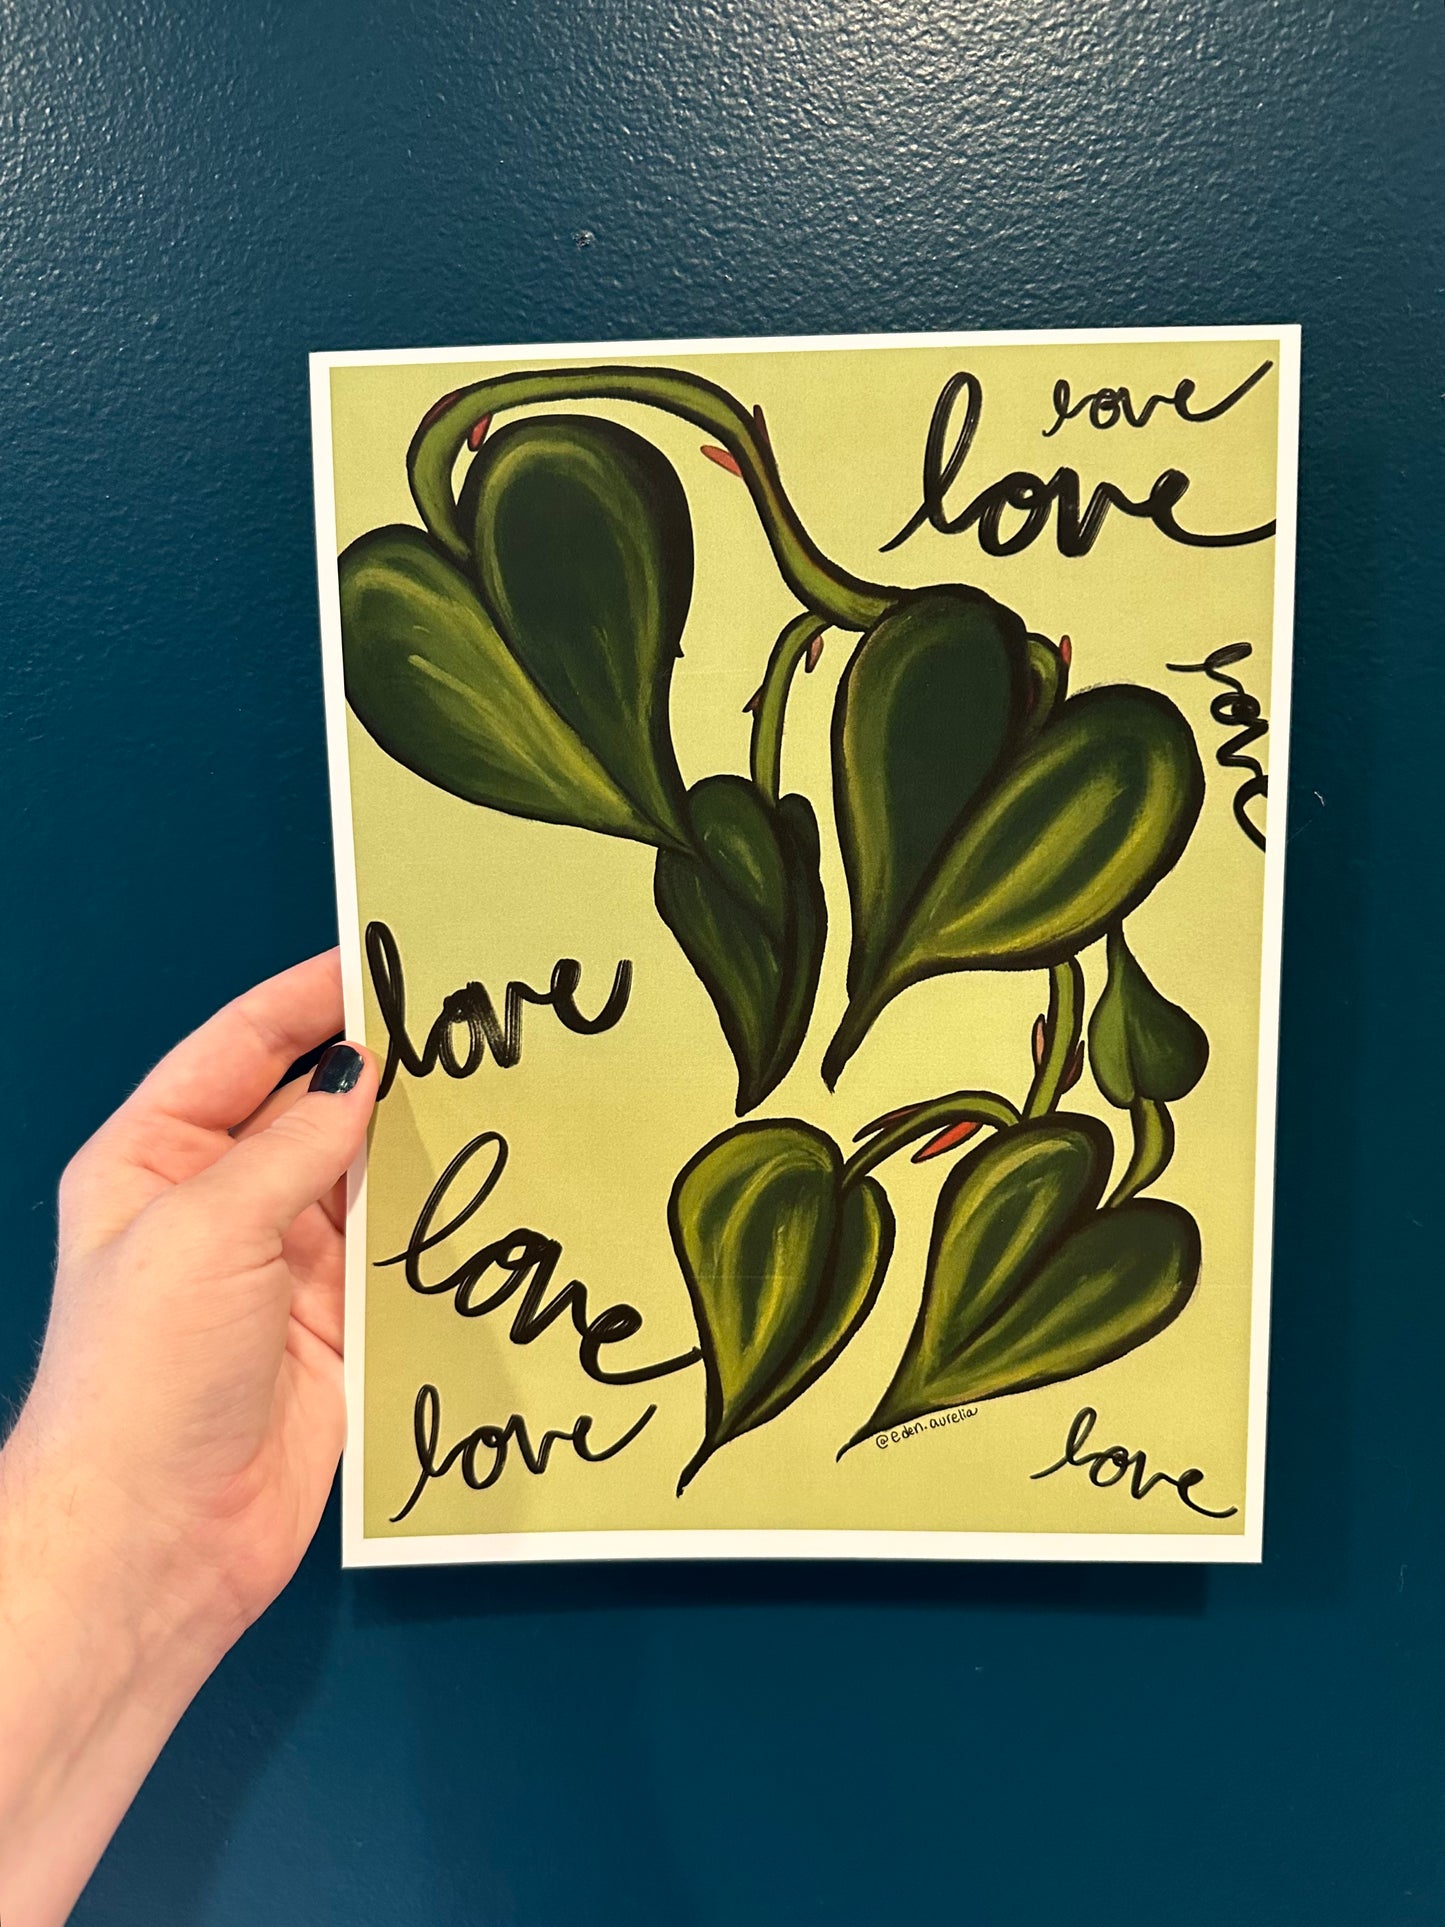 love
love
love
love
love
love
@eden.aurelia
love